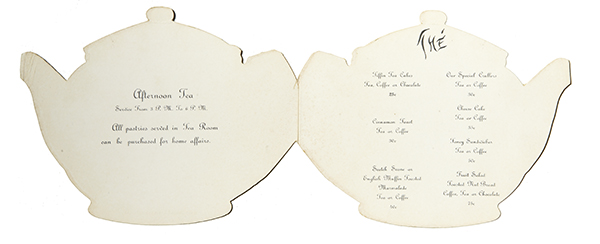 Afternoon Tea
Service From 3 P.M. To 5 P.M.
All pastries served in Tea Room
can be purchased for home affairs.
Thé
Tiffin Tea Cakes
Tea Coffee or Chocolate
Cinnamon Toast
Tea or Coffee
Scotch Scone or
English Muffin Toasted
Marmalade
Tea or Coffee
Our Special Crullers
Tea or Coffee
Cake
Tea or Coffee
Honey Sandwiches
Tea or Coffee
Fruit Salad
Toasted Nut Bread
Coffee, Tea or Chocolate